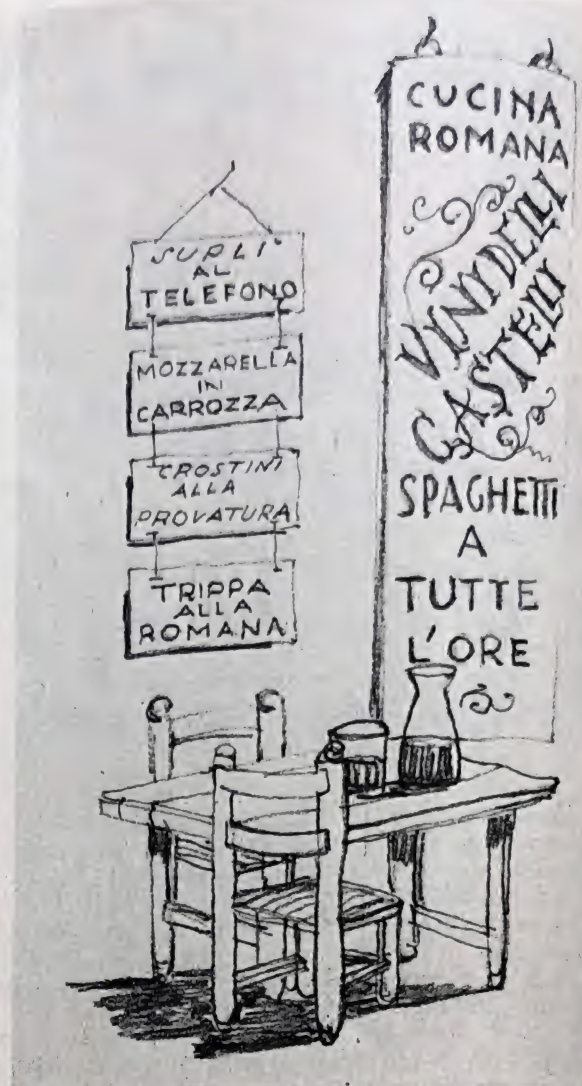 SUPLI'
AL
TELEFONO
MOZZARELLA
IN
CARROZZA
CROSTINI
ALLA
PROVATURA
TRIPPA
ALLA
ROMANA
CUCINA
ROMANA
VINI DELLI
CASTELLI
SPAGHETTI
A
TUTTE
L'ORE